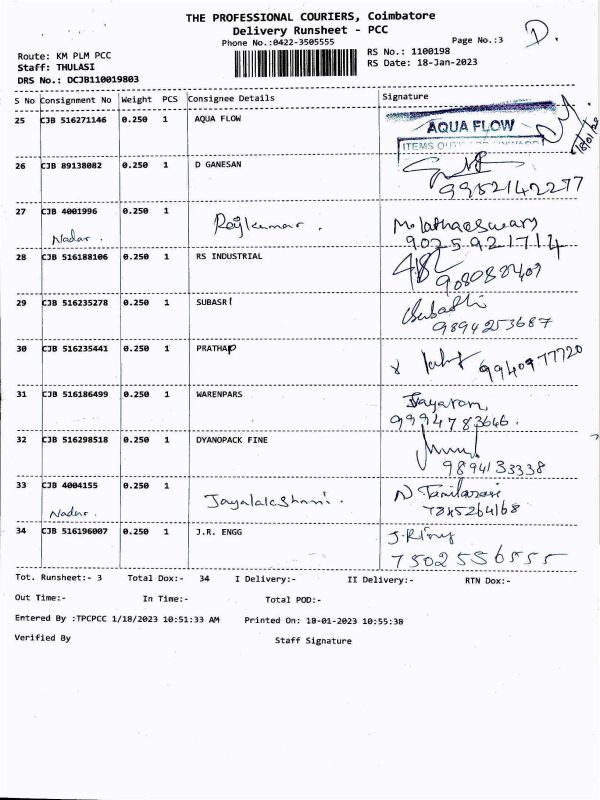 THE PROFESSIONAL COURIERS, Coimbatore
Delivery Runsheet - PCC
Phone No.:0422-3505555
Page No.:3
D.
Route: KM PLM PCC
Staff: THULASI
DRS No.: DCJB110019803
RS No.: 1100198
RS Date: 18-Jan-2023
S No Consignment No Weight PCS Consignee Details Signature
25 CJB 516271146 0.250 1 AQUA FLOW
AQUA FLOW
26 CJB 89138082 0.250 1 D GANESAN
9952142277
27 CJB 4001996 0.250 1 Rajkumar.
Nadar.
9025921714
28 CJB 516188106 0.250 1 RS INDUSTRIAL
29 CJB 516235278 0.250 1 SUBASRI
9894253687
30 CJB 516235441 0.250 1 PRATHAP
9940977720
31 CJB 516186499 0.250 1 WARENPARS
Jayaram
9994783646.
32 CJB 516298518 0.250 1 DYANOPACK FINE
9894133338
33 CJB 4004155 0.250 1
Nadar.
N Tamilarasi
7845264168
34 CJB 516196007 0.250 1 J.R. ENGG
7502556555
Tot. Runsheet:- 3 Total Dox:- 34 I Delivery:- II Delivery:- RTN Dox:-
Out Time:- In Time:- Total POD:-
Entered By :TPCPCC 1/18/2023 10:51:33 AM Printed On: 18-01-2023 10:55:38
Verified By Staff Signature